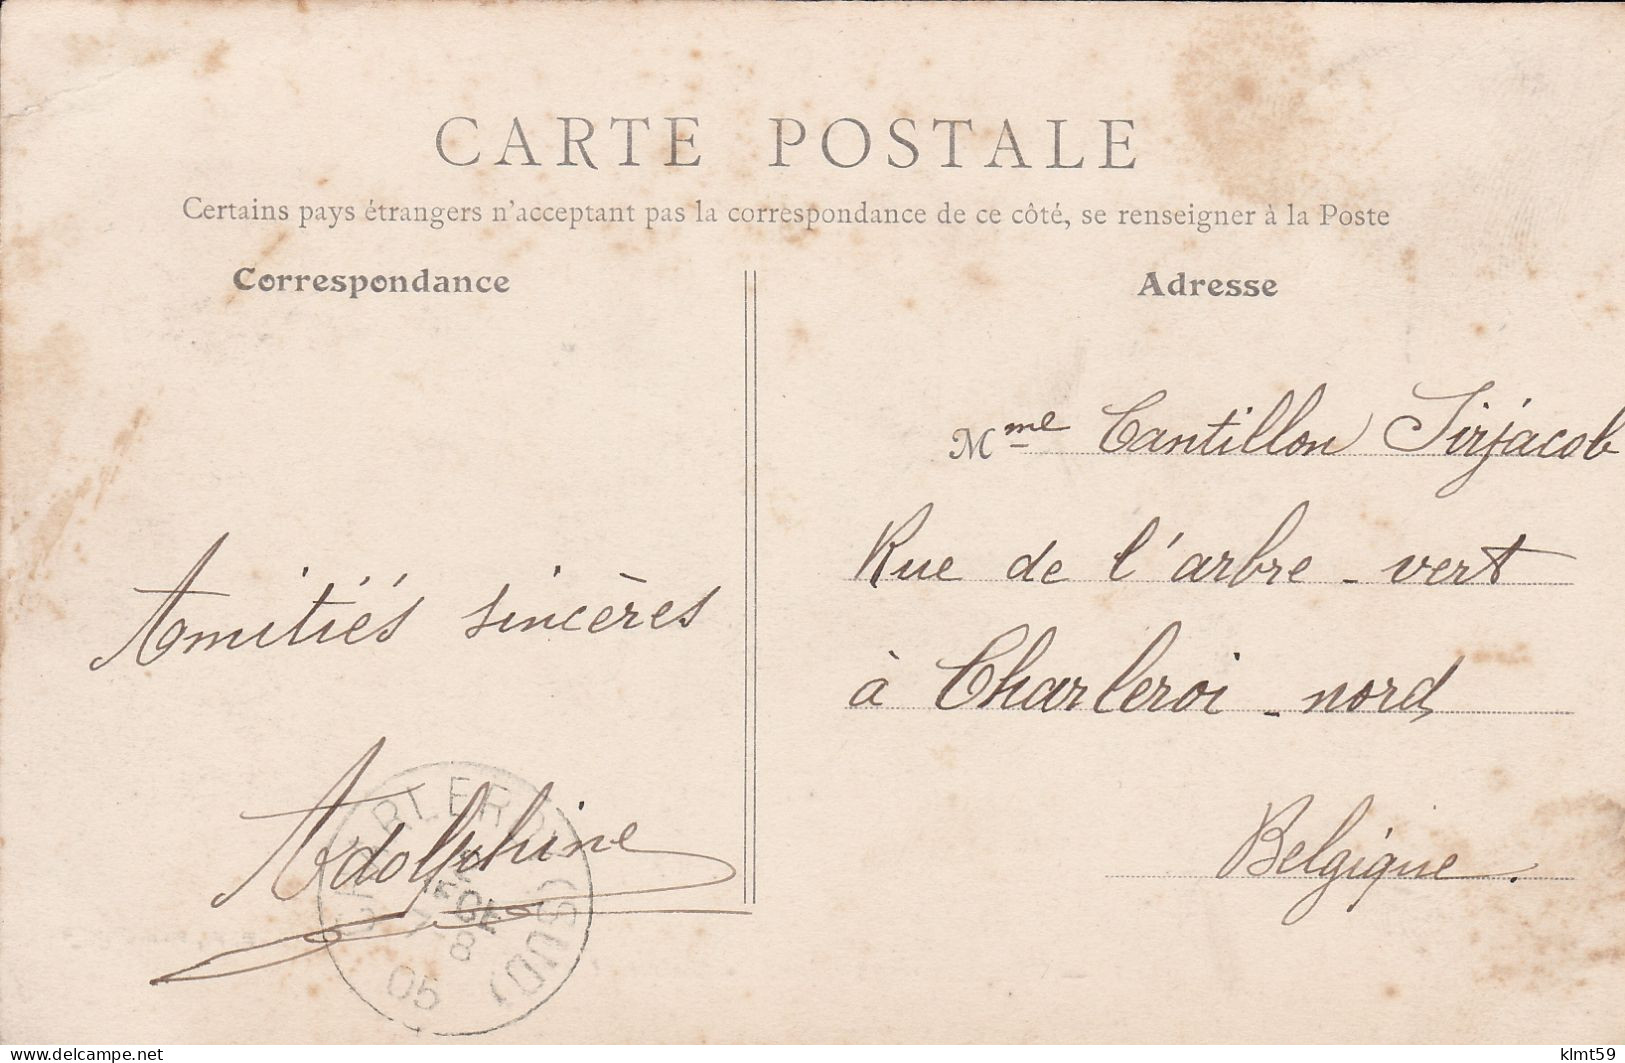 CARTE POSTALE
Certains pays étrangers n'acceptant pas la correspondance de ce côté, se renseigner à la Poste
Correspondance
Adresse
Mme Cantillon Sirjacob
Rue de l'arbre - vert
à Charleroi - nord
Belgique.
Amitiés sincères
Adolphine
CHARLEROI (SUD)
8
05
delcampe.net
klmt59